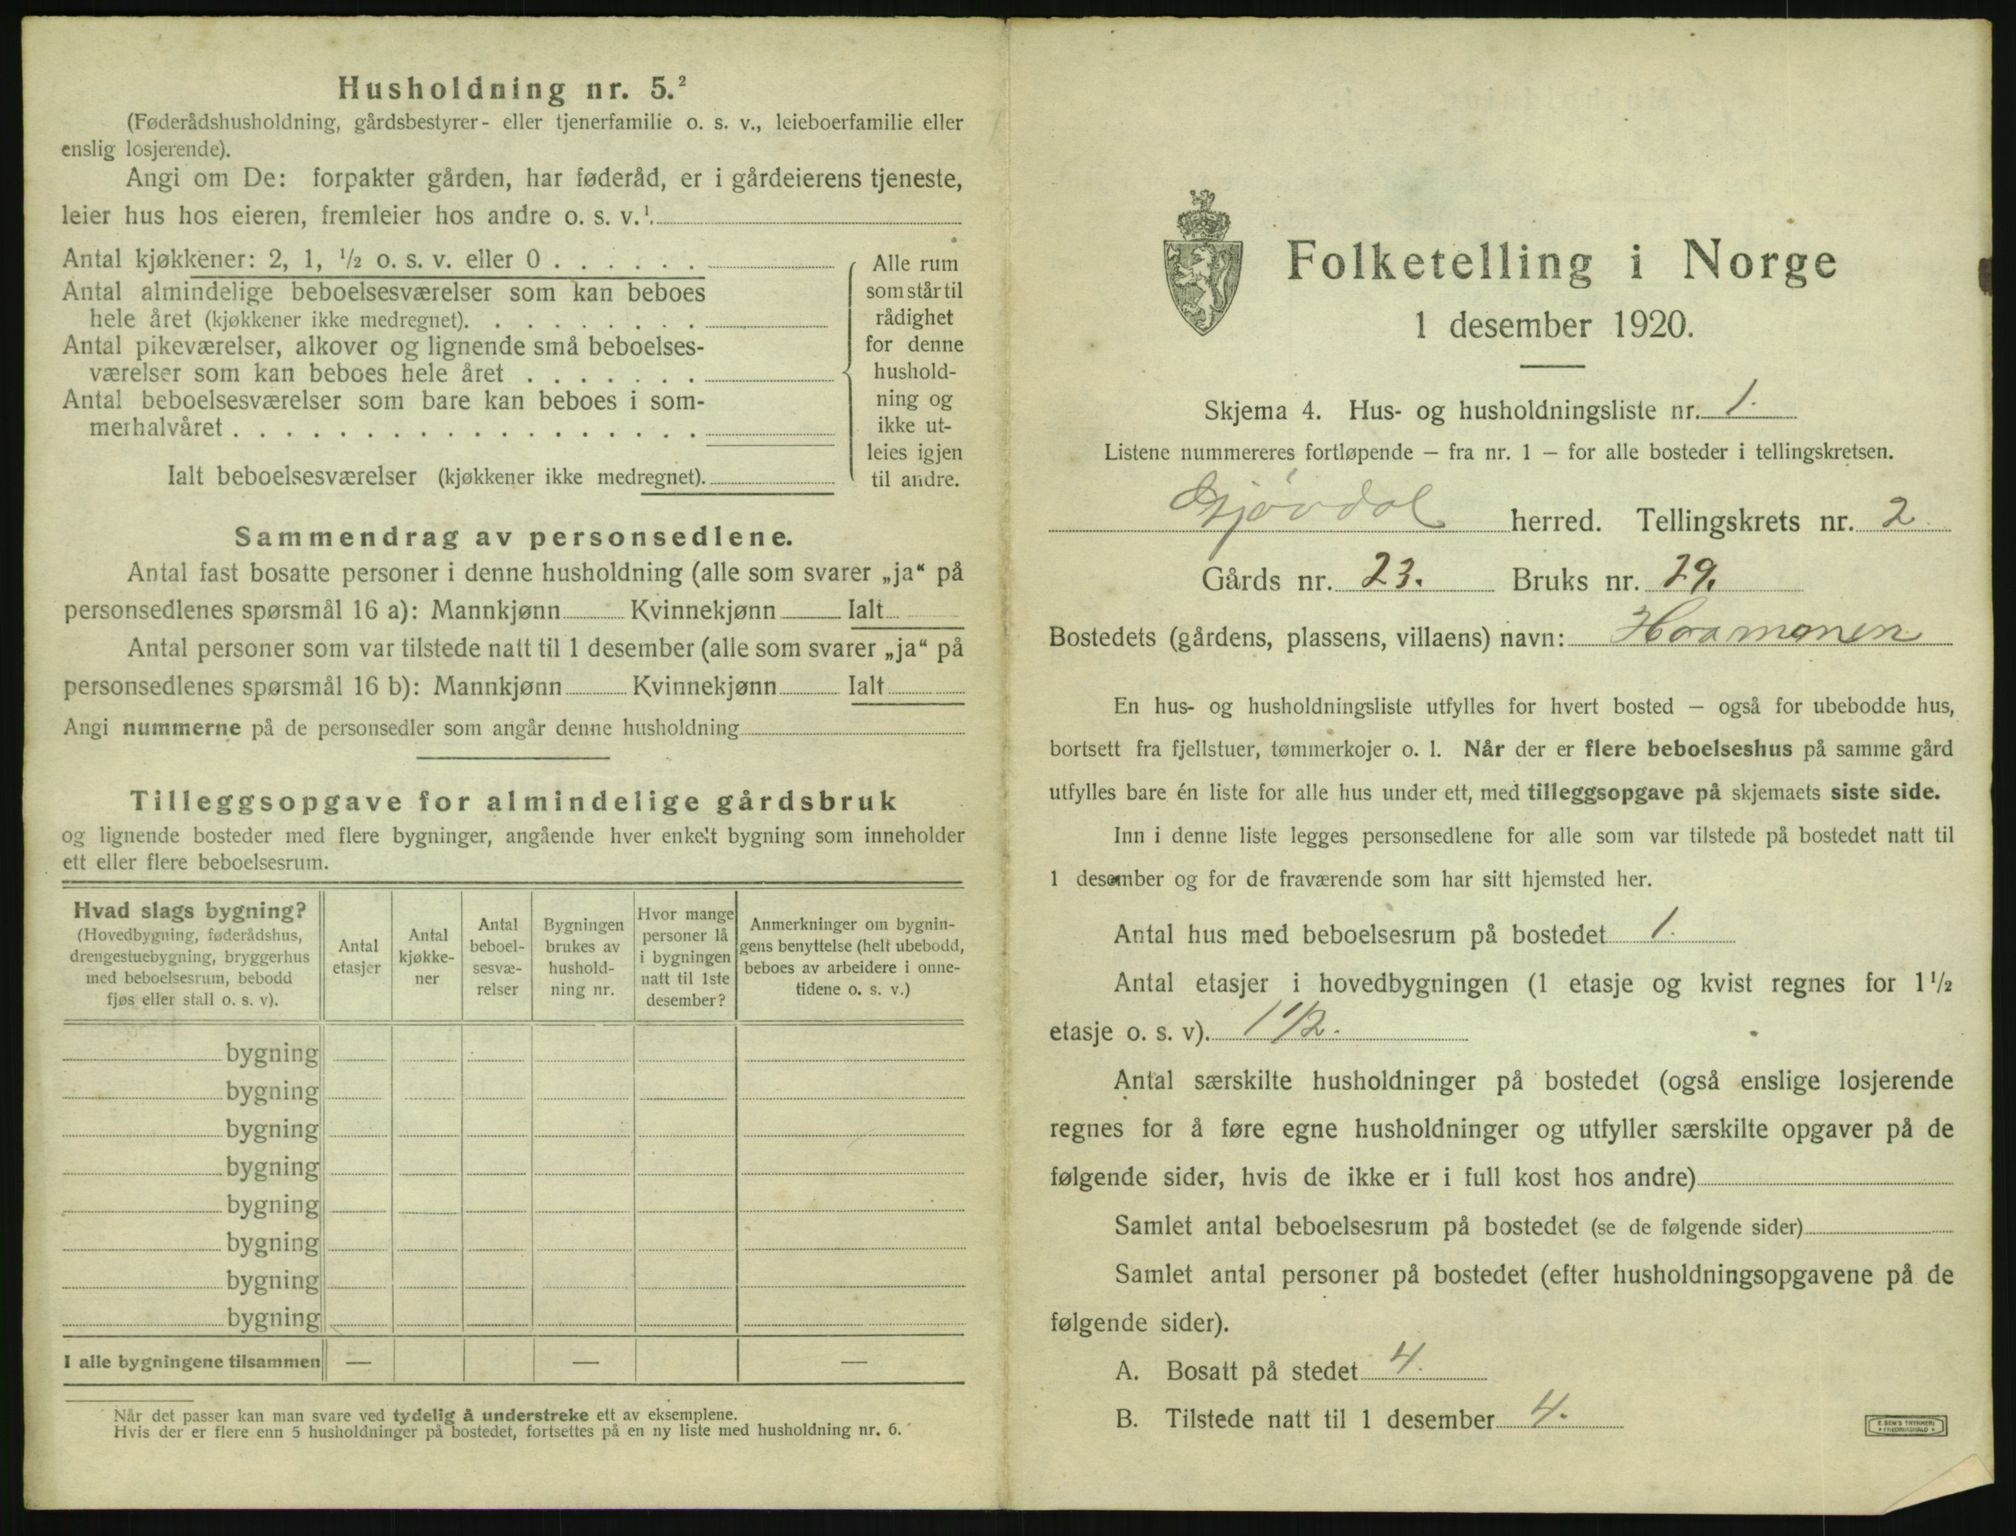 Husholdning nr. 5.²
(Føderådshusholdning, gårdsbestyrer- eller tjenerfamilie o. s. v., leieboerfamilie eller
enslig losjerende).
Angi om De: forpakter gården, har føderåd, er i gårdeierens tjeneste,
leier hus hos eieren, fremleier hos andre o. s. v.¹
Antal kjøkkener: 2, 1, ½ o. s. v. eller 0 . . . . . .
Antal almindelige beboelsesværelser som kan beboes
hele året (kjøkkener ikke medregnet). . . . . . . . .
Antal pikeværelser, alkover og lignende små beboelses-
værelser som kan beboes hele året . . . . . . .
Antal beboelsesværelser som bare kan beboes i som-
merhalvåret . . . . . . . . . . . . . . . . . .
Ialt beboelsesværelser (kjøkkener ikke medregnet).
Alle rum
som står til
rådighet
for denne
hushold-
ning og
ikke ut-
leies igjen
til andre.
Sammendrag av personsedlene.
Antal fast bosatte personer i denne husholdning (alle som svarer „ja“ på
personsedlenes spørsmål 16 a): Mannkjønn Kvinnekjønn Ialt
Antal personer som var tilstede natt til 1 desember (alle som svarer „ja“ på
personsedlenes spørsmål 16 b): Mannkjønn Kvinnekjønn Ialt
Angi nummerne på de personsedler som angår denne husholdning
Tilleggsopgave for almindelige gårdsbruk
og lignende bosteder med flere bygninger, angående hver enkelt bygning som inneholder
ett eller flere beboelsesrum.
Hvad slags bygning?
(Hovedbygning, føderådshus,
drengestuebygning, bryggerhus
med beboelsesrum, bebodd
fjøs eller stall o. s. v).
Antal
etasjer
Antal
kjøkke-
ner
Antal
beboel-
sesvæ-
relser
Bygningen
brukes av
hushold-
ning nr.
Hvor mange
personer lå
i bygningen
natt til 1ste
desember?
Anmerkninger om bygnin-
gens benyttelse (helt ubebodd,
beboes av arbeidere i onne-
tidene o. s. v.)
bygning
bygning
bygning
bygning
bygning
bygning
bygning
bygning
I alle bygningene tilsammen — — —
Når det passer kan man svare ved tydelig å understreke ett av eksemplene.
Hvis der er flere enn 5 husholdninger på bostedet, fortsettes på en ny liste med husholdning nr. 6.
Folketelling i Norge
1 desember 1920.
Skjema 4. Hus- og husholdningsliste nr. 1.
Listene nummereres fortløpende — fra nr. 1 — for alle bosteder i tellingskretsen.
Gjøvdal herred. Tellingskrets nr. 2
Gårds nr. 23. Bruks nr. 29.
Bostedets (gårdens, plassens, villaens) navn: Haamonen
En hus- og husholdningsliste utfylles for hvert bosted — også for ubebodde hus,
bortsett fra fjellstuer, tømmerkojer o. l. Når der er flere beboelseshus på samme gård
utfylles bare én liste for alle hus under ett, med tilleggsopgave på skjemaets siste side.
Inn i denne liste legges personsedlene for alle som var tilstede på bostedet natt til
1 desember og for de fraværende som har sitt hjemsted her.
Antal hus med beboelsesrum på bostedet 1.
Antal etasjer i hovedbygningen (1 etasje og kvist regnes for 1 ½
etasje o. s. v). 1 1/2.
Antal særskilte husholdninger på bostedet (også enslige losjerende
regnes for å føre egne husholdninger og utfyller særskilte opgaver på de
følgende sider, hvis de ikke er i full kost hos andre)
Samlet antal beboelsesrum på bostedet (se de følgende sider)
Samlet antal personer på bostedet (efter husholdningsopgavene på de
følgende sider).
A. Bosatt på stedet 4.
B. Tilstede natt til 1 desember 4.
E. SEM'S TRYKKERI
FREDRIKSHALD